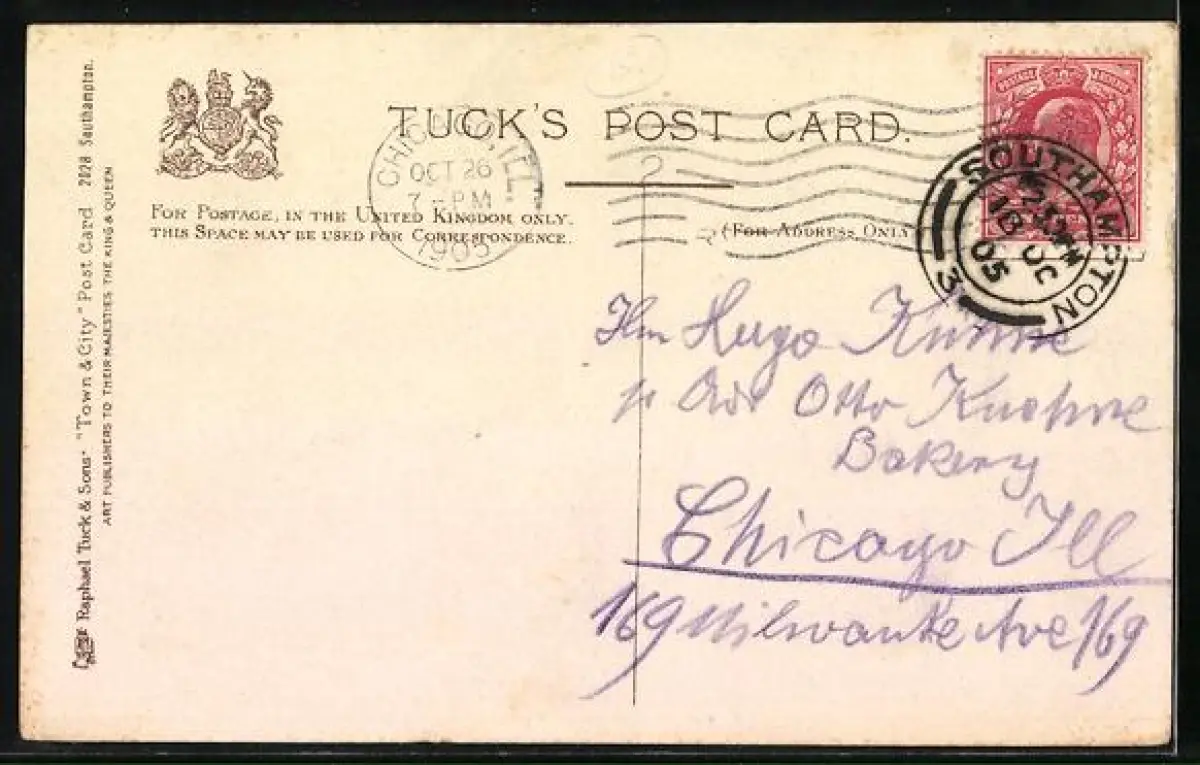 TUCK'S POST CARD.
FOR POSTAGE, IN THE UNITED KINGDOM ONLY.
THIS SPACE MAY BE USED FOR CORRESPONDENCE.
(FOR ADDRESS ONLY
CHICAGO, ILL.
OCT 26
7 - PM
1905
POSTAGE REVENUE
SOUTHAMPTON
OC
05
3
Raphael Tuck & Sons' "Town & City" Post Card 2028 Southampton.
ART PUBLISHERS TO THEIR MAJESTIES THE KING & QUEEN
Hugo
Otto Kuehne
Bakery
Chicago Ill
169 Milwauke Ave 169